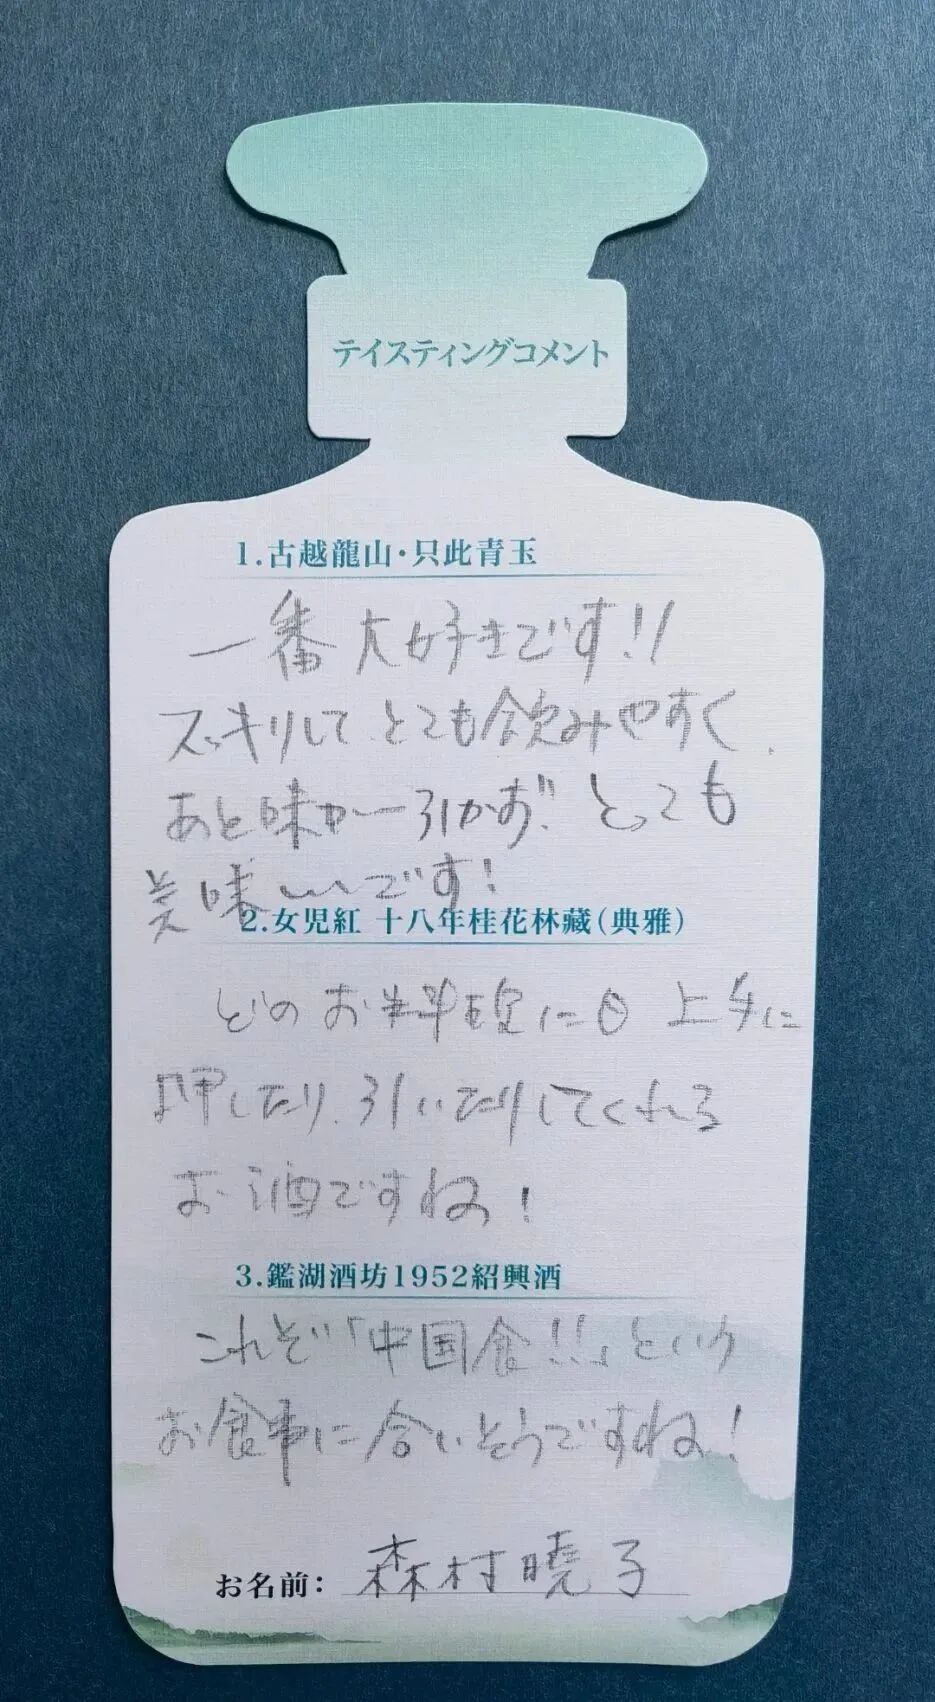 テイスティングコメント
1.古越龍山・只此青玉
一番大好きです!!
スッキリして、とても飲みやすく、
あと味が引かず!とっても
美味しいです!
2.女児紅 十八年桂花林藏(典雅)
どのお料理にも上手に
押したり、引いたりしてくれる
お酒ですね!
3.鑑湖酒坊1952紹興酒
これぞ「中国食!!」という
お食事に合いそうですね!
お名前: 森村曉子